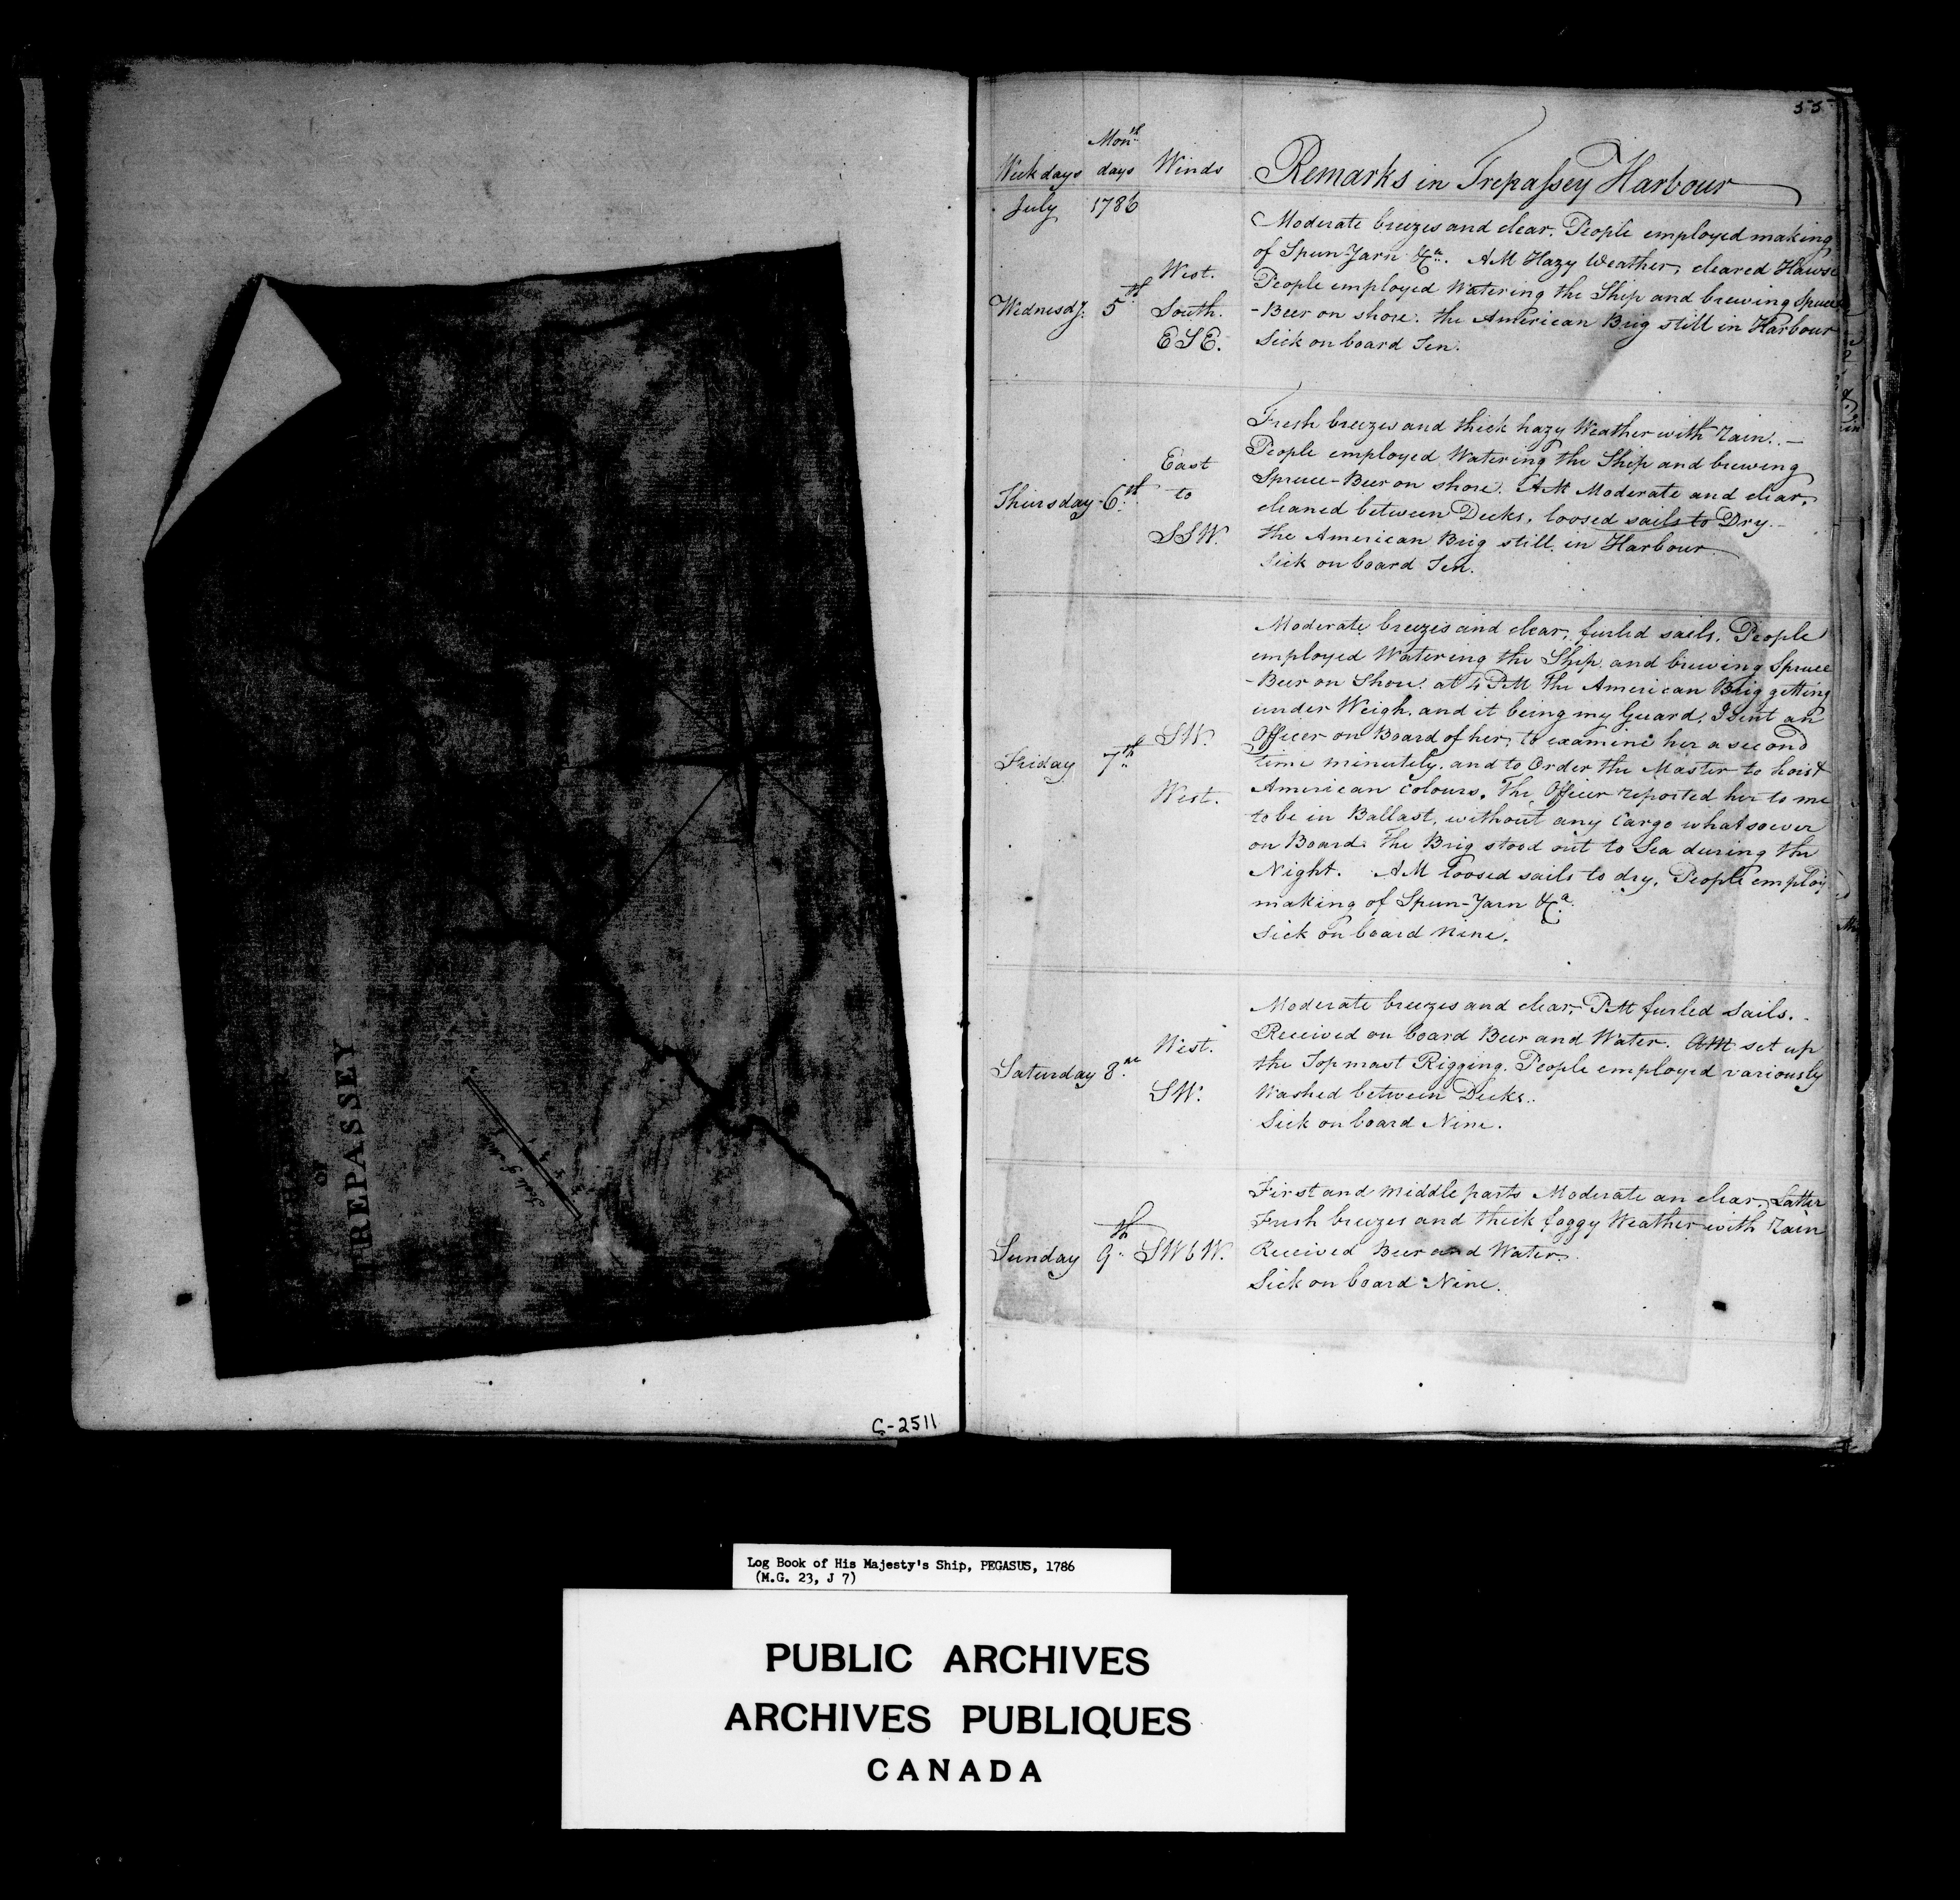 OF
TREPASSEY
C-2511
55
Week days Mon.th days Winds Remarks in Trepassey Harbour
July 1786
Moderate breezes and clear. People employed making
of Spun-Yarn &c.a. AM Hazy Weather, cleared Hawse
West. People employed Watering the Ship and brewing Spruce
Wednesdy. 5th South. -Beer on shore. the American Brig still in Harbour
ESE. Sick on board Ten.
Fresh breezes and thick hazy Weather with rain. —
East People employed Watering the Ship and brewing
Thursday - 6th to Spruce-Beer on shore. AM Moderate and clear,
cleaned between Decks, loosed sails to Dry. -
SSW. the American Brig still in Harbour
Sick on board Ten.
Moderate breezes and clear, furled sails. People
employed Watering the Ship and brewing Spruce
-Beer on Shore. at 4 PM The American Brig getting
under Weigh, and it being my Guard, I sent an
SW. Officer on Board of her, to examine her a second
Friday 7th time minutely, and to Order the Master to hoist
West. American Colours. The Officer reported her to me
to be in Ballast, without any Cargo whatsoever
on Board. The Brig stood out to Sea during the
Night. AM loosed sails to dry. People employ
making of Spun-Yarn &c.a
Sick on board Nine.
Moderate breezes and clear, PM furled Sails. -
West. Received on board Beer and Water. AM set up
Saturday 8 the Topmast Rigging. People employed variously
SW. Washed between Decks.
Sick on board Nine.
First and middle parts Moderate an clear, Latter
Fresh breezes and thick foggy Weather with rain
Sunday 9th SWbW. Received Beer and Water.
Sick on board Nine.
Log Book of His Majesty's Ship, PEGASUS, 1786
(M.G. 23, J 7)
PUBLIC ARCHIVES
ARCHIVES PUBLIQUES
CANADA